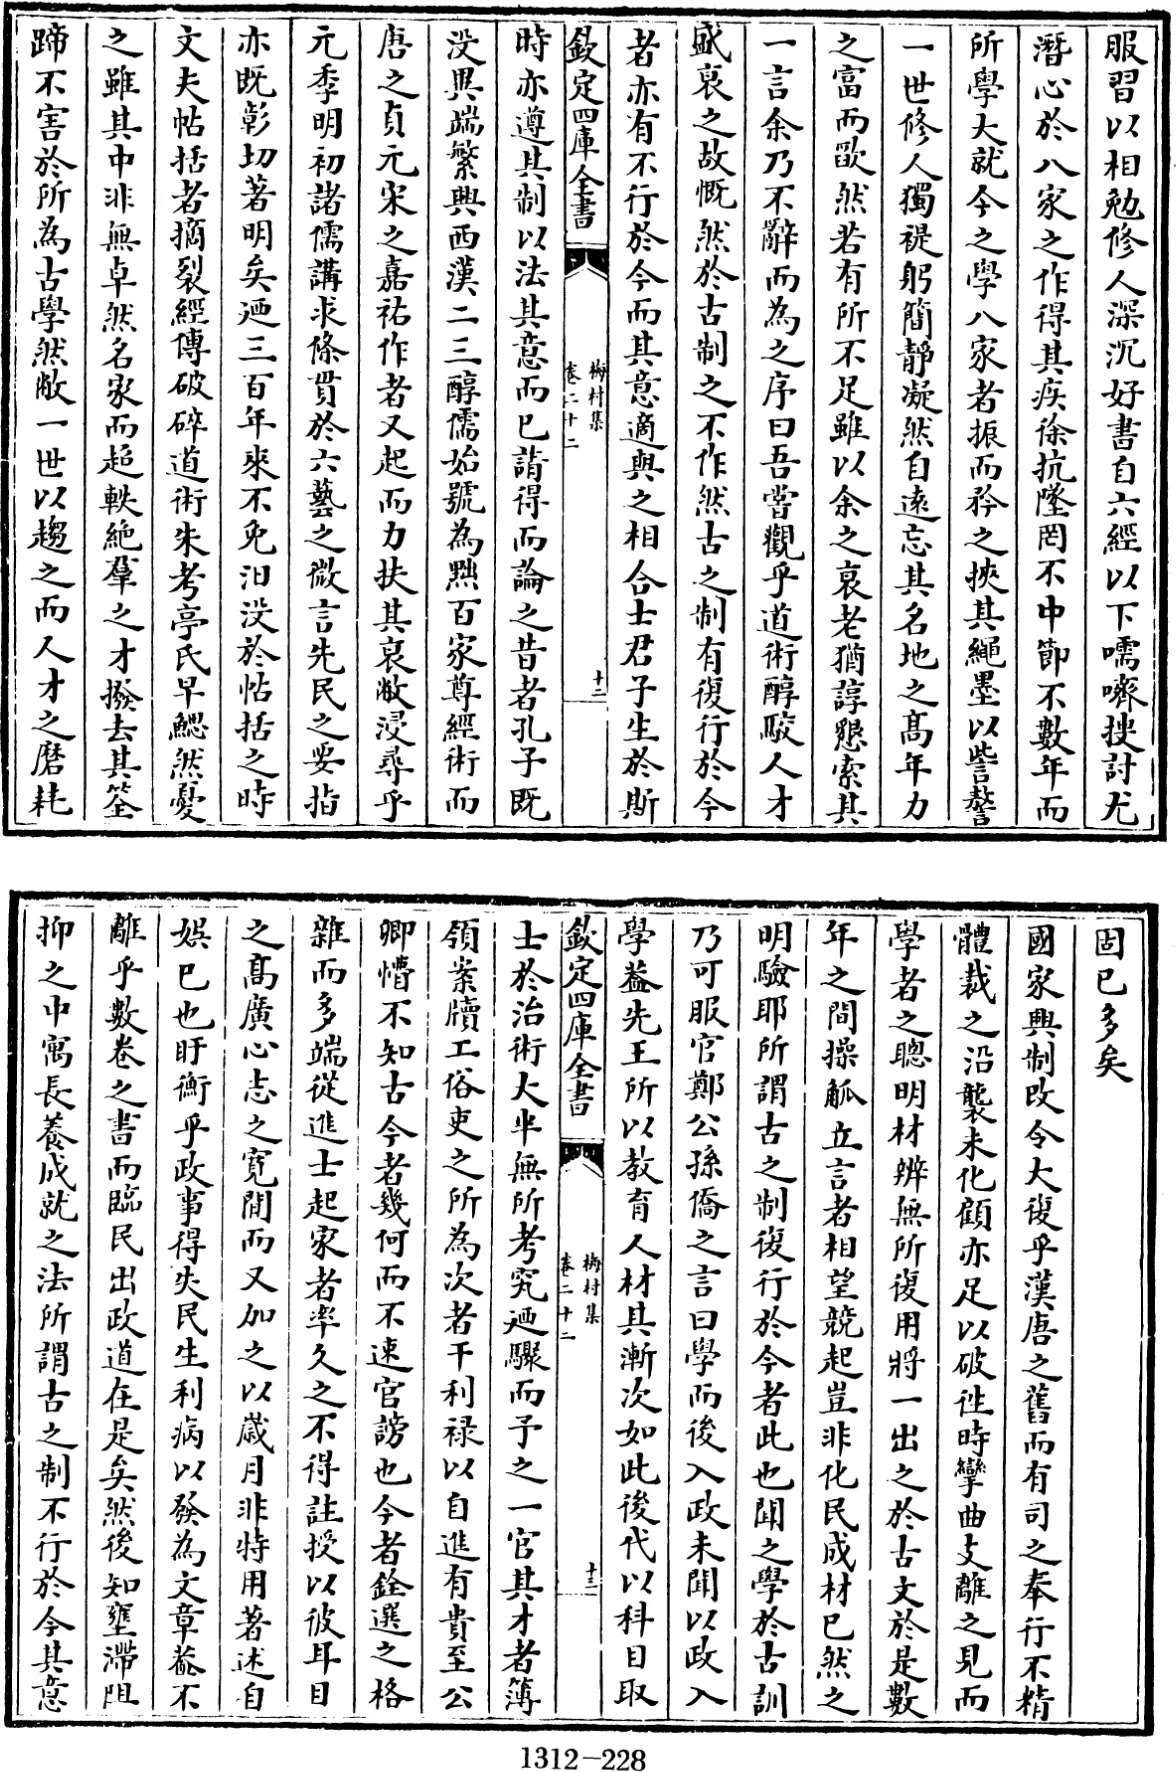 服習以相勉修人深沉好書自六經以下嚅嚌挾討尤
潛心於八家之作得其疾徐抗墜罔不中節不數年而
所學大就今之學八家者振而矜之挾其繩墨以訾謷
一世修人獨褆躬簡靜凝然自遠忘其名地之髙年力
之富而歐然若有所不足雖以余之衰老猶諄懇索其
一言余乃不辭而為之序曰吾嘗觀乎道術醇駁人才
盛衰之故慨然於古制之不作然古之制有復行於今
者亦有不行於今而其意適與之相合士君子生於斯
欽定四庫全書
梅村集
卷二十二
十二
時亦遵其制以法其意而已請得而論之昔者孔子既
没異端繁興西漢二三醇儒始號為黜百家尊經術而
唐之貞元宋之嘉祐作者又起而力扶其衰敝浸尋乎
元季明初諸儒講求條貫於六藝之微言先民之要指
亦既彰切著明矣迺三百年來不免汩没於帖括之時
文夫帖括者摘裂經傳破碎道術朱考亭氏早鰓然憂
之雖其中非無卓然名家而超軼絶羣之才撥去其筌
蹄不害於所為古學然敝一世以趨之而人才之磨耗
固已多矣
國家興制改令大復乎漢唐之舊而有司之奉行不精
體裁之沿襲未化顧亦足以破徃時攣曲支離之見而
學者之聰明材辨無所復用將一出之於古文於是數
年之間操觚立言者相望競起豈非化民成材已然之
明驗耶所謂古之制復行於今者此也聞之學於古訓
乃可服官鄭公孫僑之言曰學而後入政未聞以政入
學葢先王所以教育人材其漸次如此後代以科目取
欽定四庫全書
梅村集
卷二十二
十三
士於治術大半無所考究迺驟而予之一官其才者簿
領案牘工俗吏之所為次者干利禄以自進有貴至公
卿懵不知古今者幾何而不速官謗也今者銓選之格
雜而多端從進士起家者率久之不得註授以彼耳目
之髙廣心志之寛閒而又加之以嵗月非特用著述自
娛已也盱衡乎政事得失民生利病以發為文章葢不
離乎數卷之書而臨民出政道在是矣然後知壅滯阻
抑之中寓長養成就之法所謂古之制不行於今其意
1312-228